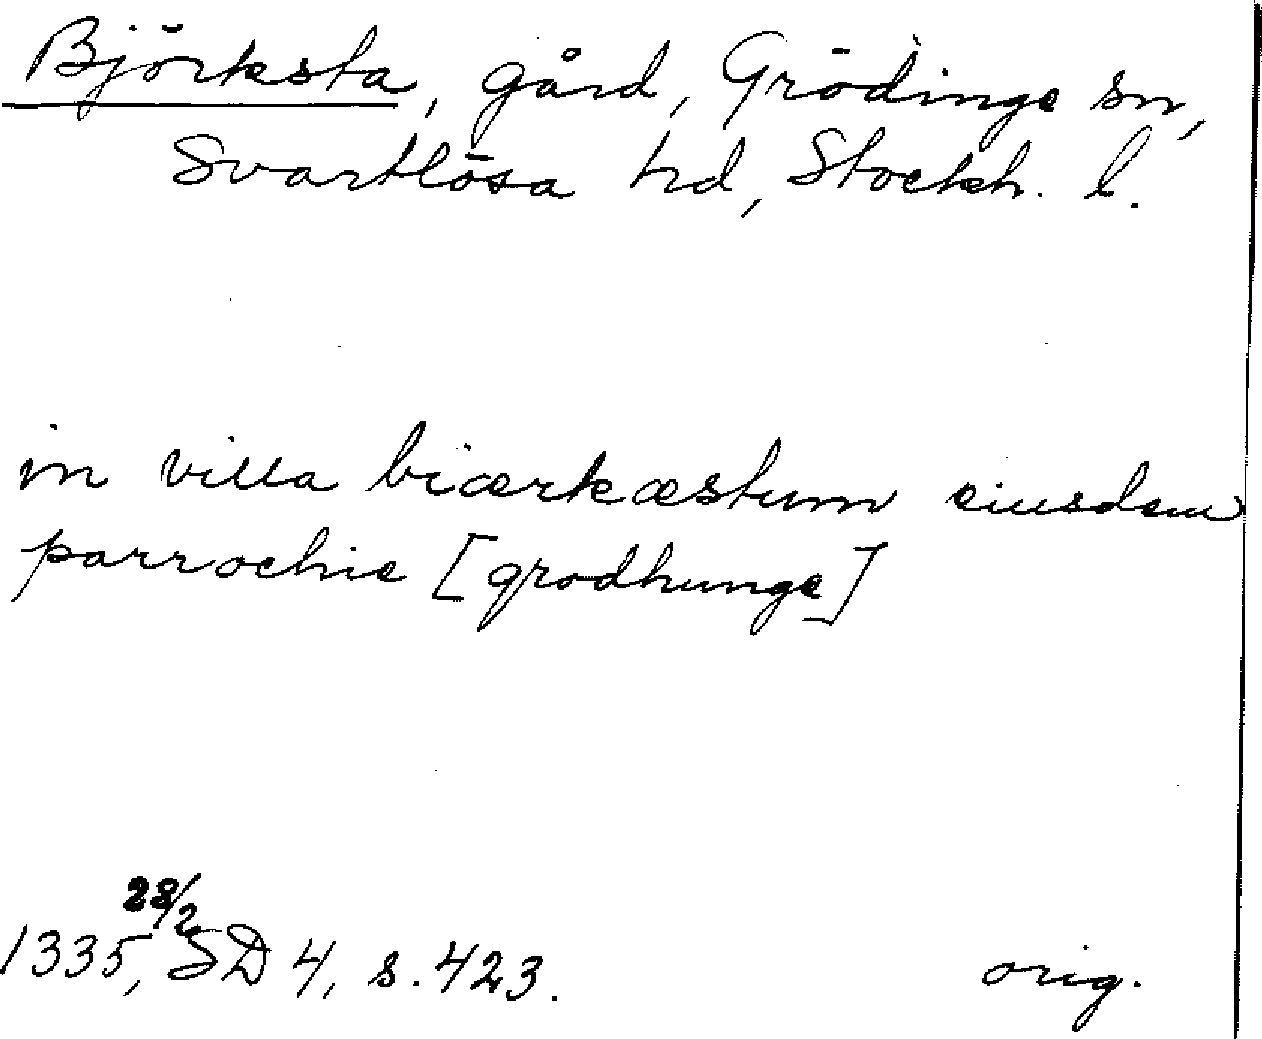 Björksta, gård, Grödinge sn,
Svartlösa hd, Stockh. l.
in villa biærkæstum eiusdem
parrochie [grodhunge]
28/2
1335, SD 4, s. 423.
orig.